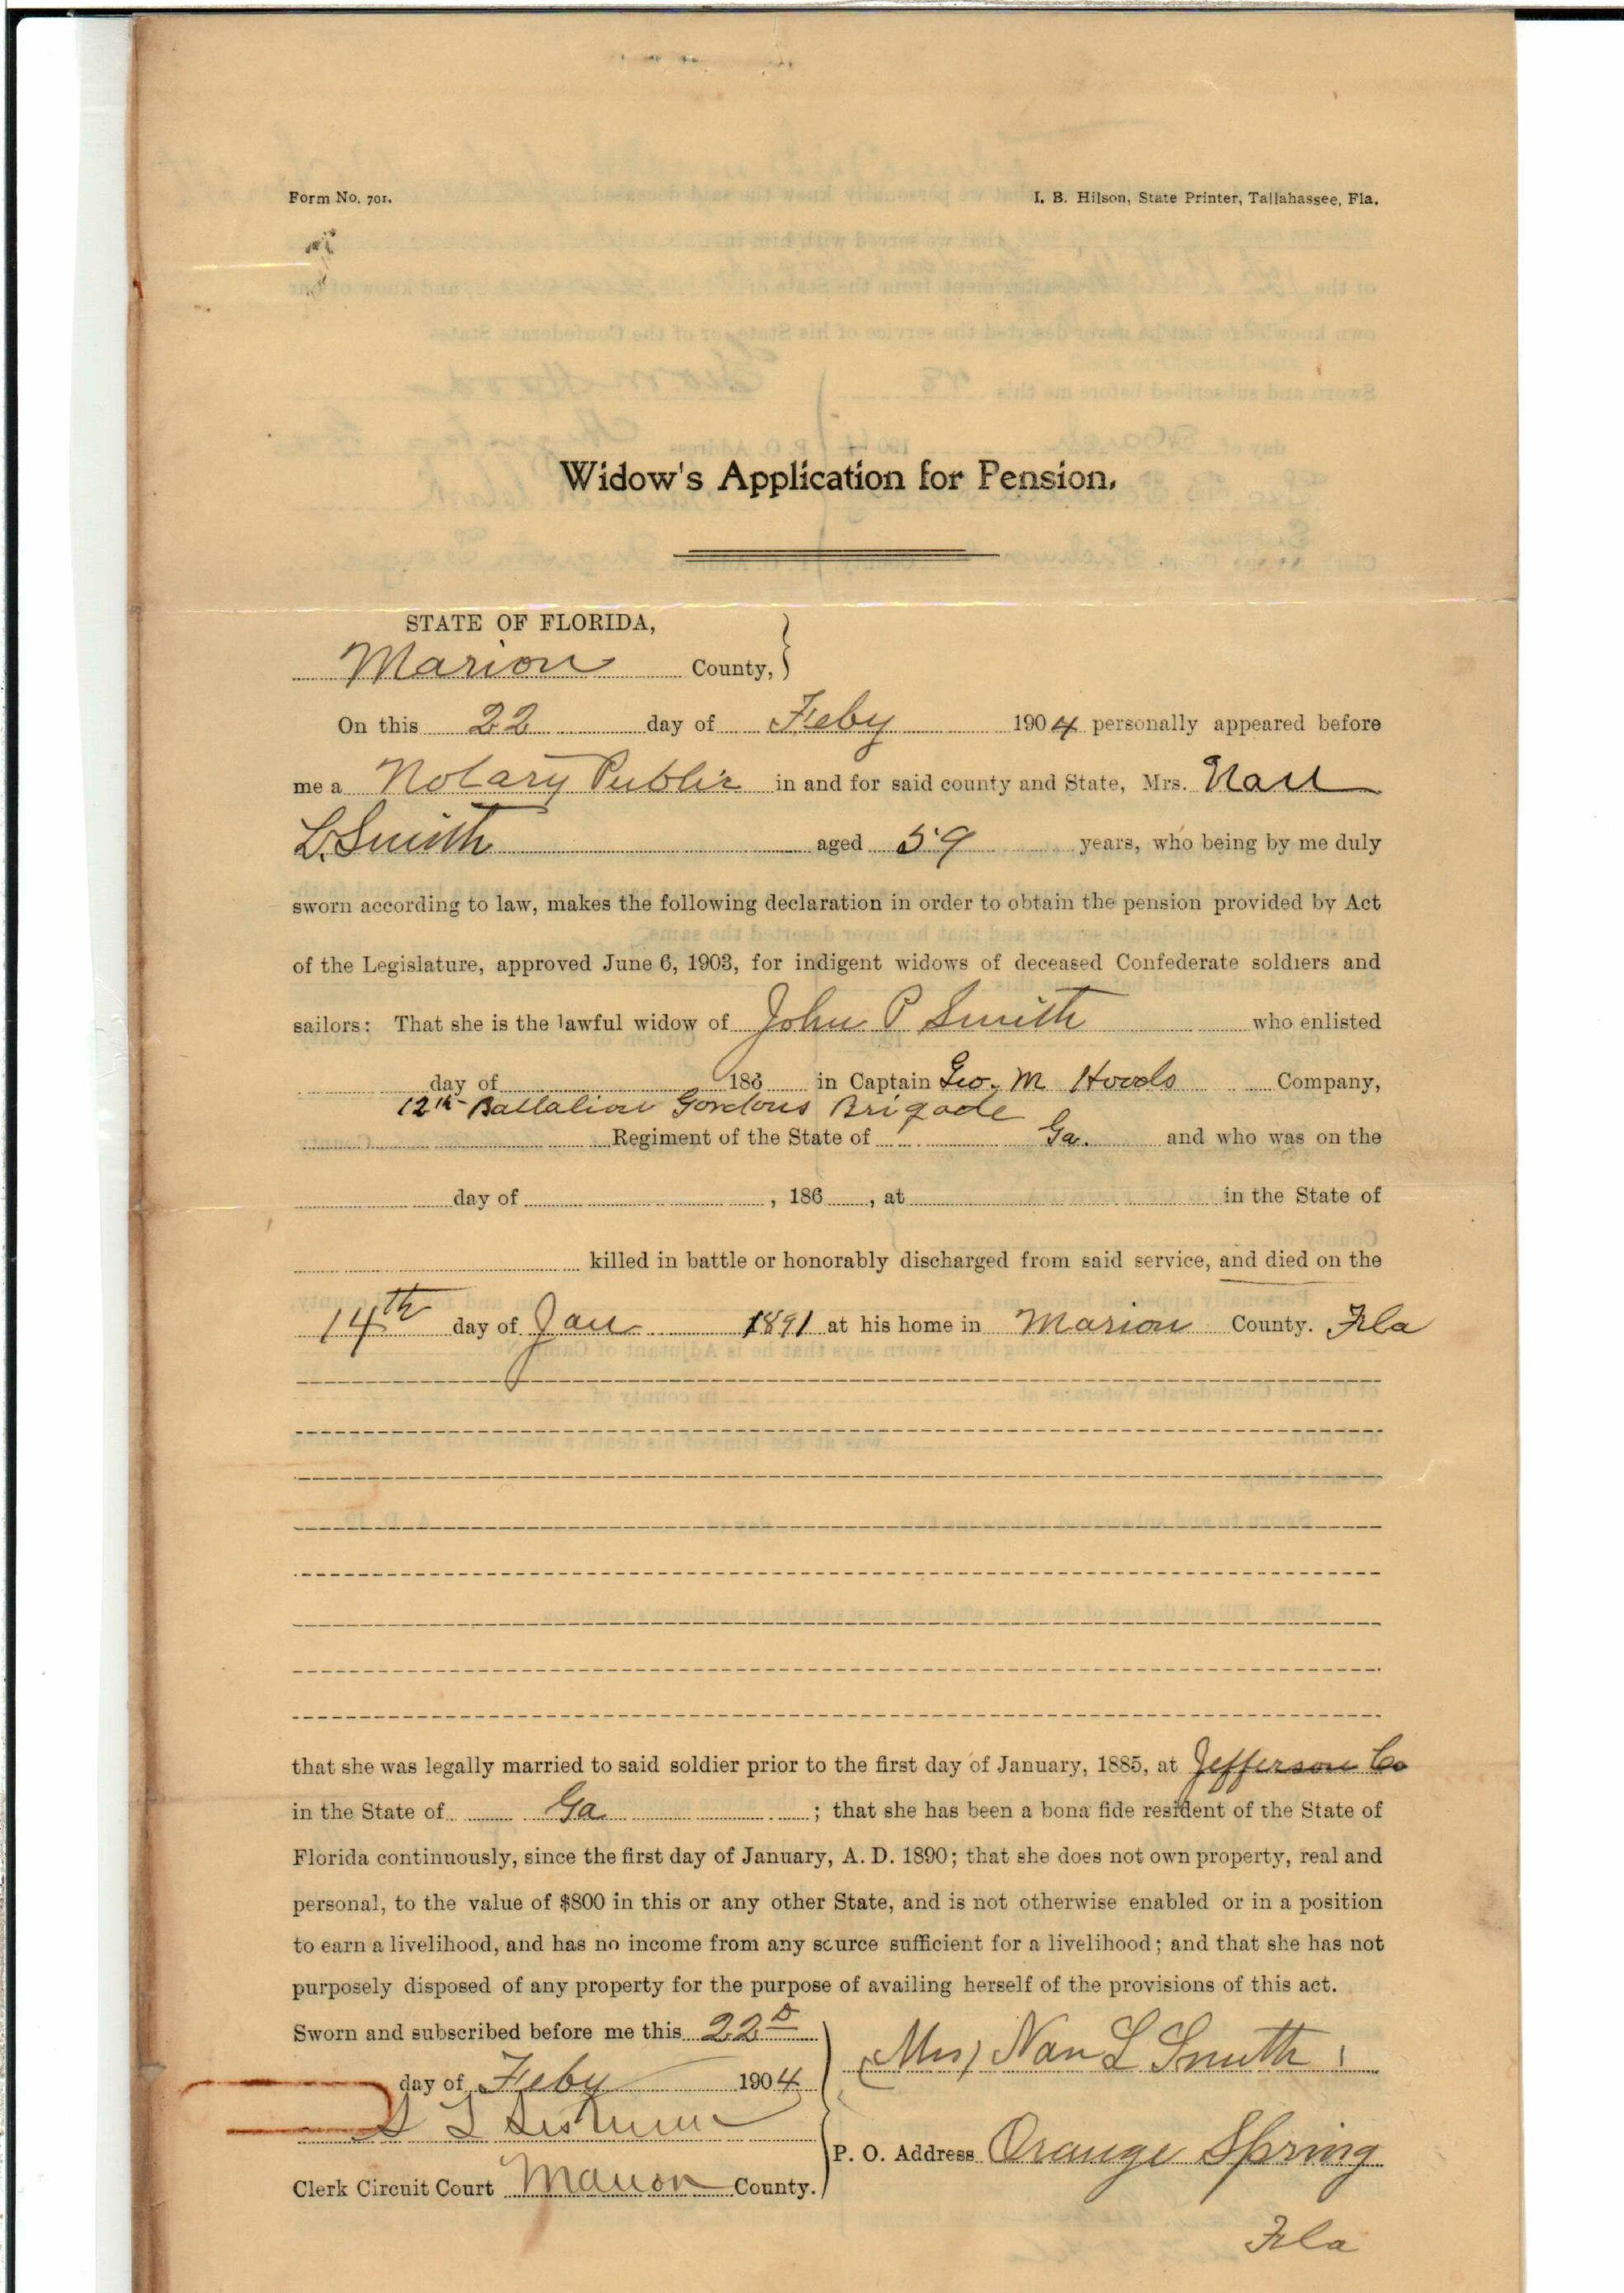 Form No. 701.
I. B. Hilson, State Printer, Tallahassee, Fla.
Widow's Application for Pension.
STATE OF FLORIDA,
Marion County,
On this 22 day of Feby 1904 personally appeared before
me a Notary Public in and for said county and State, Mrs. Nan
L. Smith aged 59 years, who being by me duly
sworn according to law, makes the following declaration in order to obtain the pension provided by Act
of the Legislature, approved June 6, 1903, for indigent widows of deceased Confederate soldiers and
sailors: That she is the lawful widow of John P Smith who enlisted
day of 186 in Captain Geo. M Hoods Company,
12th Battalion Gordons Brigade
Regiment of the State of Ga. and who was on the
day of , 186 , at in the State of
killed in battle or honorably discharged from said service, and died on the
14th day of Jan 1891 at his home in Marion County. Fla
that she was legally married to said soldier prior to the first day of January, 1885, at Jefferson Co
in the State of Ga ; that she has been a bona fide resident of the State of
Florida continuously, since the first day of January, A. D. 1890; that she does not own property, real and
personal, to the value of $800 in this or any other State, and is not otherwise enabled or in a position
to earn a livelihood, and has no income from any source sufficient for a livelihood; and that she has not
purposely disposed of any property for the purpose of availing herself of the provisions of this act.
Sworn and subscribed before me this 22D
day of Feby 1904
(Mrs) Nan L Smith
P. O. Address Orange Spring
Fla
Clerk Circuit Court Marion County.